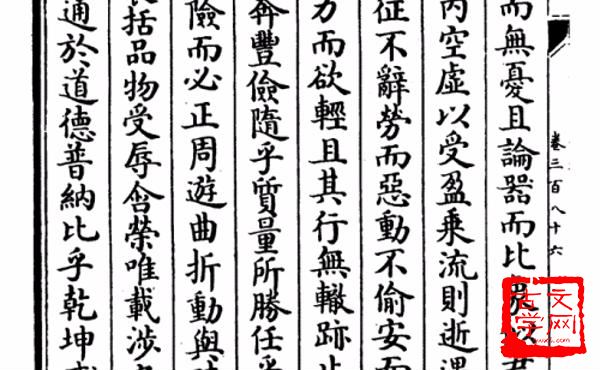 而無憂且論器而比
內空虛以受盈乗流則逝遇
征不辭勞而惡動不偷安而
力而欲輕且其行無轍跡止
奔豐儉隨乎質量所勝任
險而必正周遊曲折動與
括品物受辱含榮唯載涉
通於道德普納比乎乾坤
卷三百八十六
古文学网